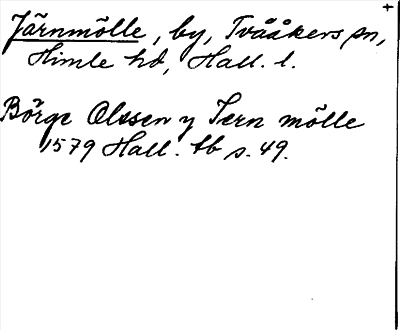 Järnmölle, by, Tvååkers sn,
Himle hd, Hall. l.
Börge Olssen y Jern mölle
1579 Hall. tb s. 49.